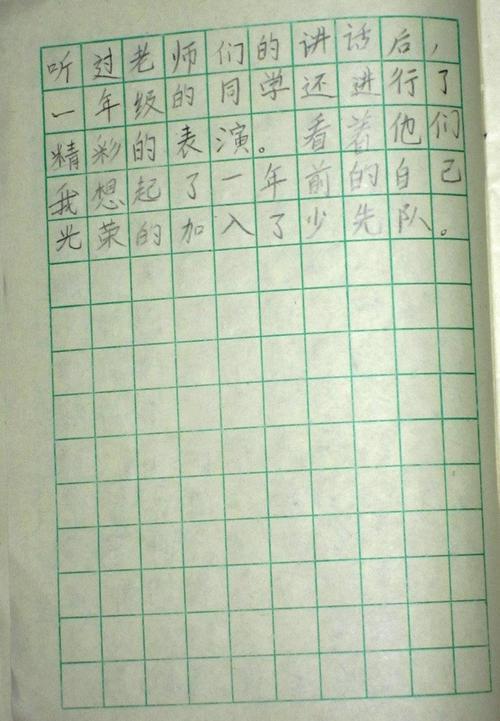 听过老师们的讲话后，
一年级的同学还进行了
精彩的表演。看着他们
我想起了一年前的自己
光荣的加入了少先队。